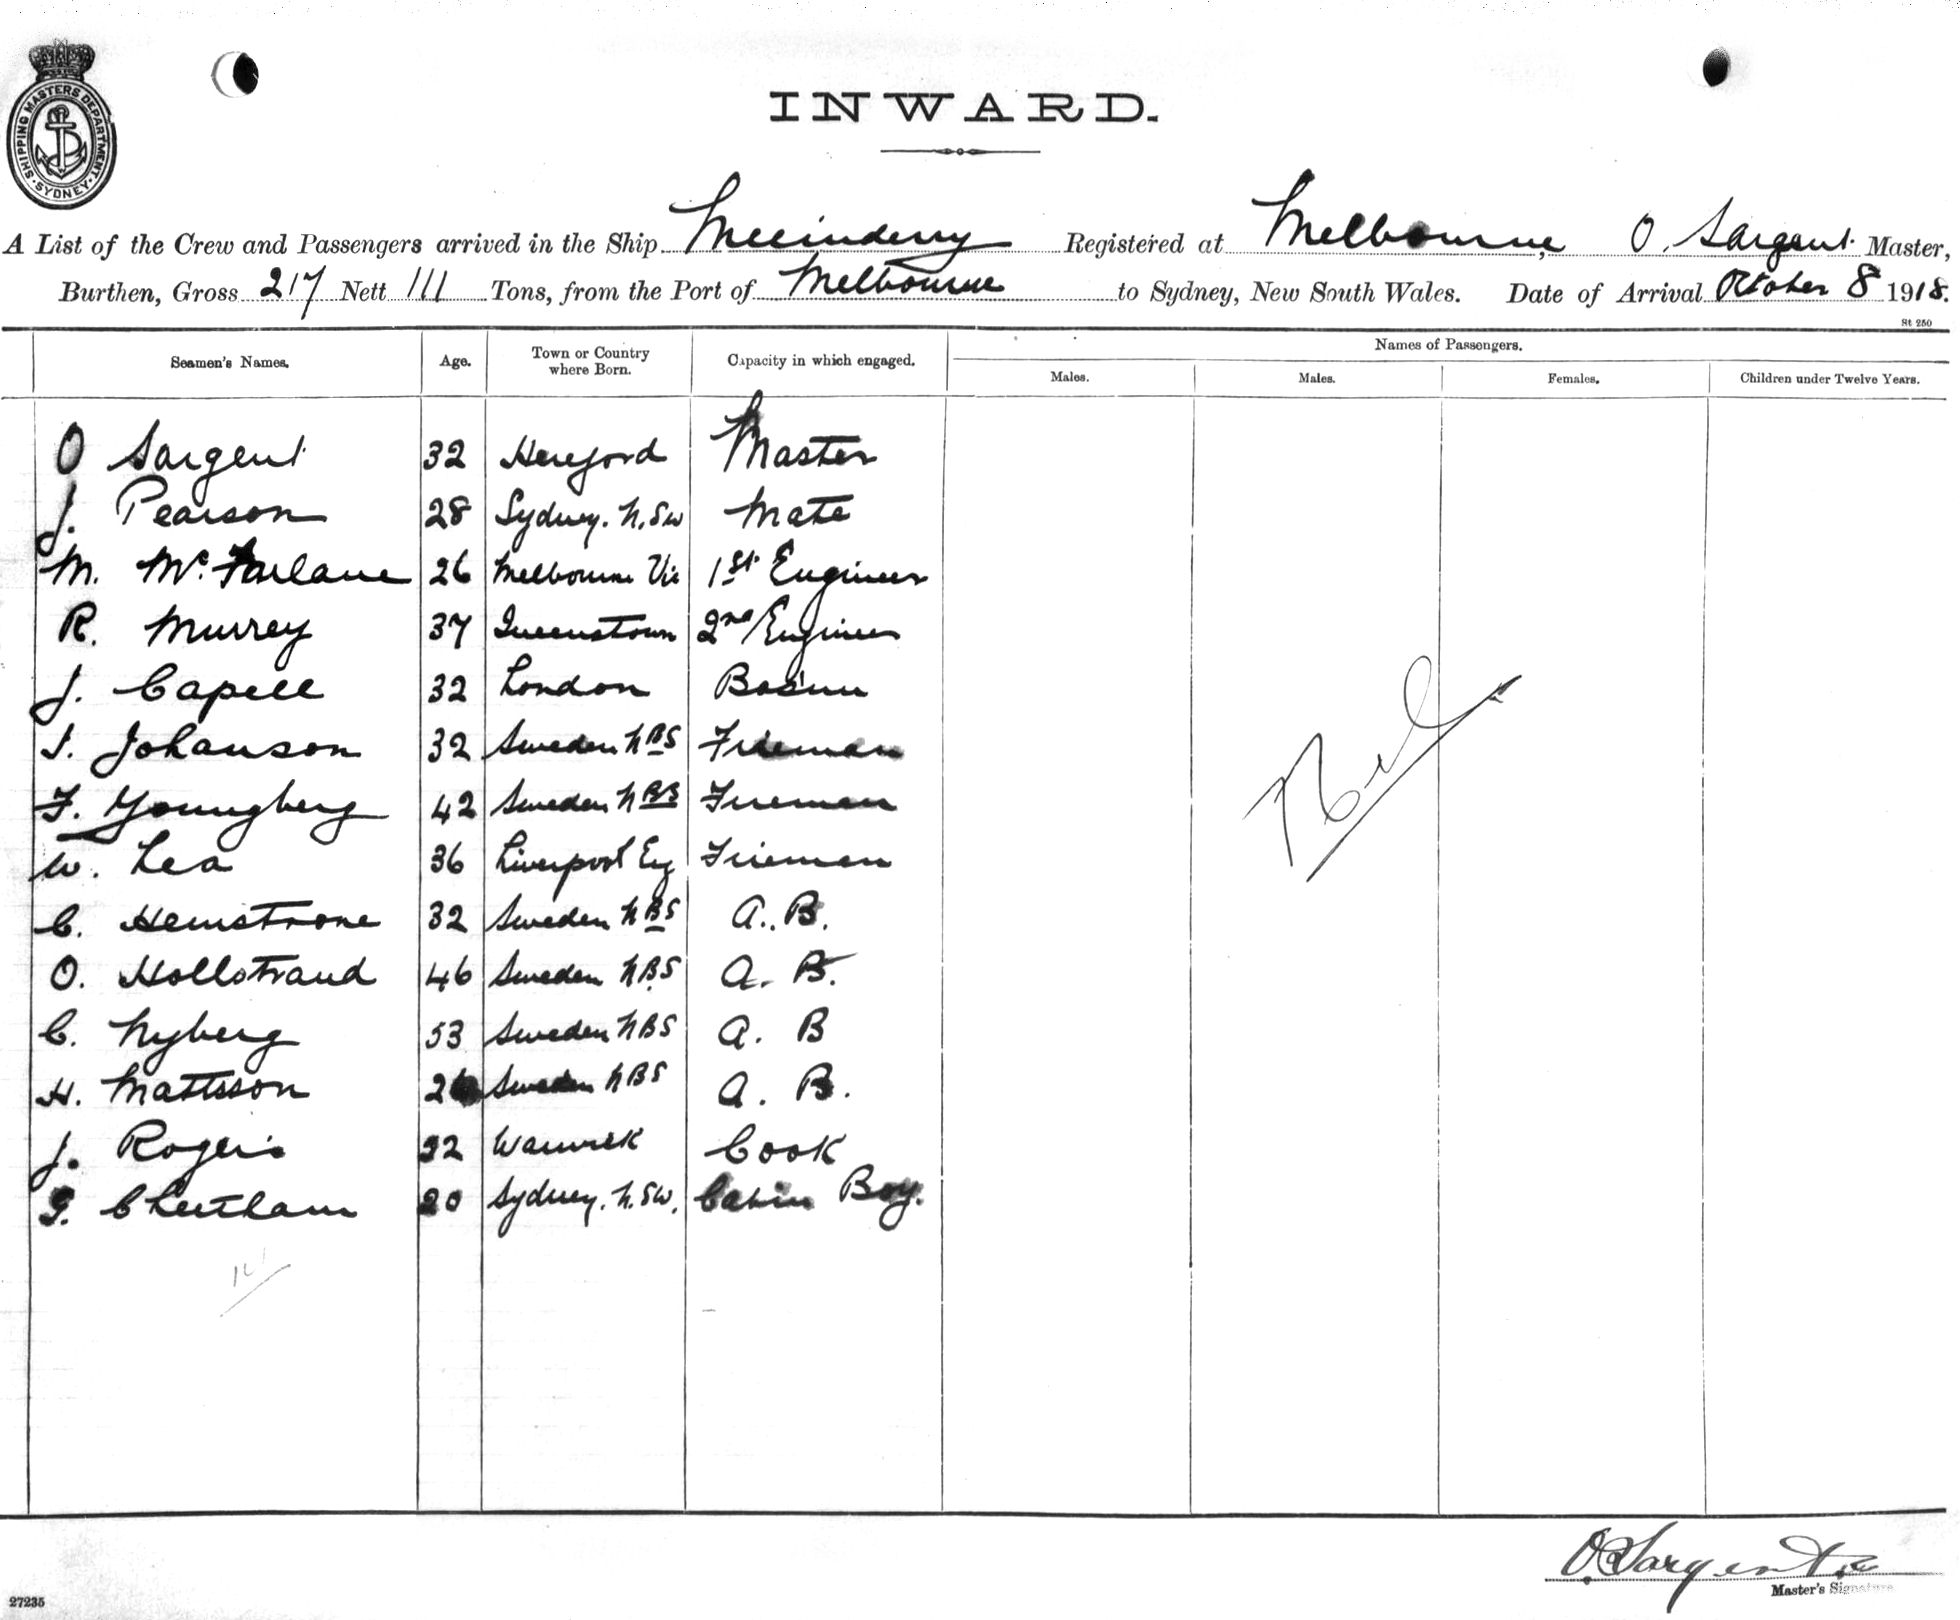 SHIPPING MASTERS DEPARTMENT · SYDNEY ·
INWARD.
A List of the Crew and Passengers arrived in the Ship Registered at Melbourne, O. Sargent Master,
Burthen, Gross 217 Nett 111 Tons, from the Port of Melbourne to Sydney, New South Wales. Date of Arrival October 8 1918.
St 250
Seamen's Names. Age. Town or Country where Born. Capacity in which engaged. Names of Passengers.
Males. Males. Females. Children under Twelve Years.
O Sargent 32 Hereford Master
J. Pearson 28 Sydney. N.SW Mate
M. Mc.Farlane 26 Melbourne Vic 1st Engineer
R. Murrey 37 Queenstown 2nd Engineer
J. Capell 32 London Bos'un
J. Johanson 32 Sweden NBS Fireman
F. Youngberg 42 Sweden NBS Fireman
W. Lea 36 Liverpool Eng Fireman
C. Hemstrone 32 Sweden NBS A.B.
O. Hollstrand 46 Sweden NBS A.B.
C. Nyberg 53 Sweden NBS A.B
H. Mattsson Sweden NBS A.B.
J. Rogers 32 Warwick Cook
G. Cheetham 20 Sydney. N.SW. Cabin Boy.
Nil
O Sargent
Master's Signature
27235